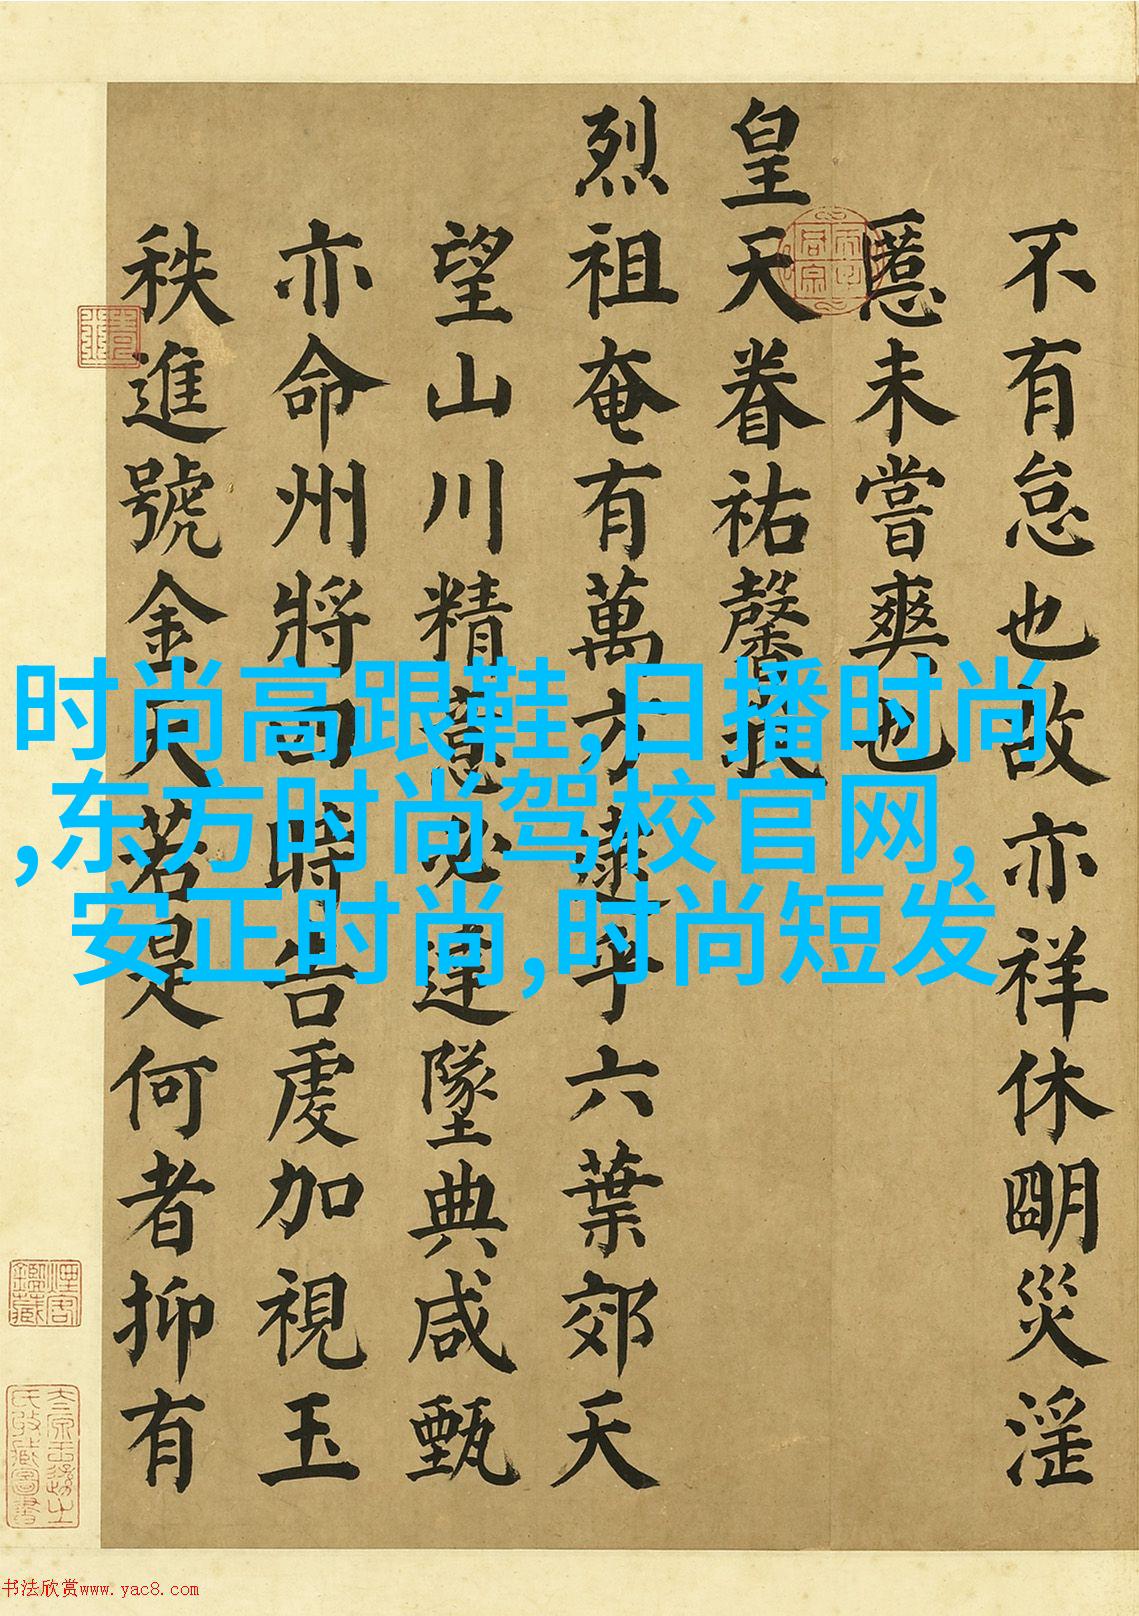 不有怠也故亦祥休朙災淫
慝未嘗爽也
皇天眷祐馨授
烈祖奄有萬方逮乎六葉郊天
望山川精意必達墜典咸甄
亦命州將四時告虔加視玉
秩進號金天若是何者抑有
时尚高跟鞋,日播时尚
,东方时尚驾校官网,
安正时尚,时尚短发
书法欣赏www.yac8.com